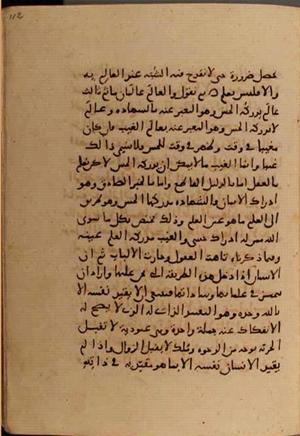 112
يحصل ضرورة حتى لا تقدح فيه الشبه عند العالم به
والا فليس بعلم ثم نقول والعالم عالمان ما ثم ثالث
عالم يدركه الحس وهو المعبر عنه بالشهادة وعالم
لا يدركه الحس وهو المعبر عنه بعالم الغيب فان كان
مغيبا في وقت وظهر في وقت للحس فلا يسمى ذلك
غيبا وانما الغيب ما لا يمكن ان يدركه الحس لكن يعلم
بالعقل اما بالدليل القاطع واما بالخبر الصادق وهو
ادراك الايمان والشهادة مدركها الحس وهو طريق
الى العلم ما هو عين العلم وذلك يختص بكل ما سوى
الله ممن له ادراك حسي والغيب مدركه العلم عينه
وفيما ذكرناه تاهت العقول وحارت الالباب ثم ان
الانسان اذا دخل هذه الطريقة التي نحن عليها واراد ان
يتميز في علمائها وساداتها فينبغي ان لا يقيد نفسه الا
بالله وحده وهو التقييد الذاتي له الذي لا يصح له
الانفكاك عنه جملة واحدة وهي عبودية لا تقبل
الحرية بوجه من الوجوه وملك لا يقبل الزوال واذا لم
يقيد الانسان نفسه الا بما هو مقيد به في ذاته